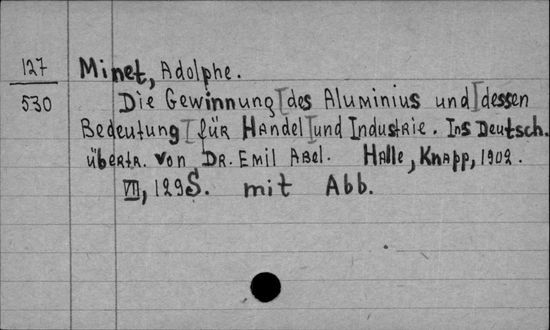 127 Minet, Adolphe.
530 Die Gewinnung des Aluminius und dessen
Bedeutung für Handel und Industrie. Ins Deutsch.
übertr. von Dr. Emil Abel. Halle, Knapp, 1902.
VII, 129S. mit Abb.